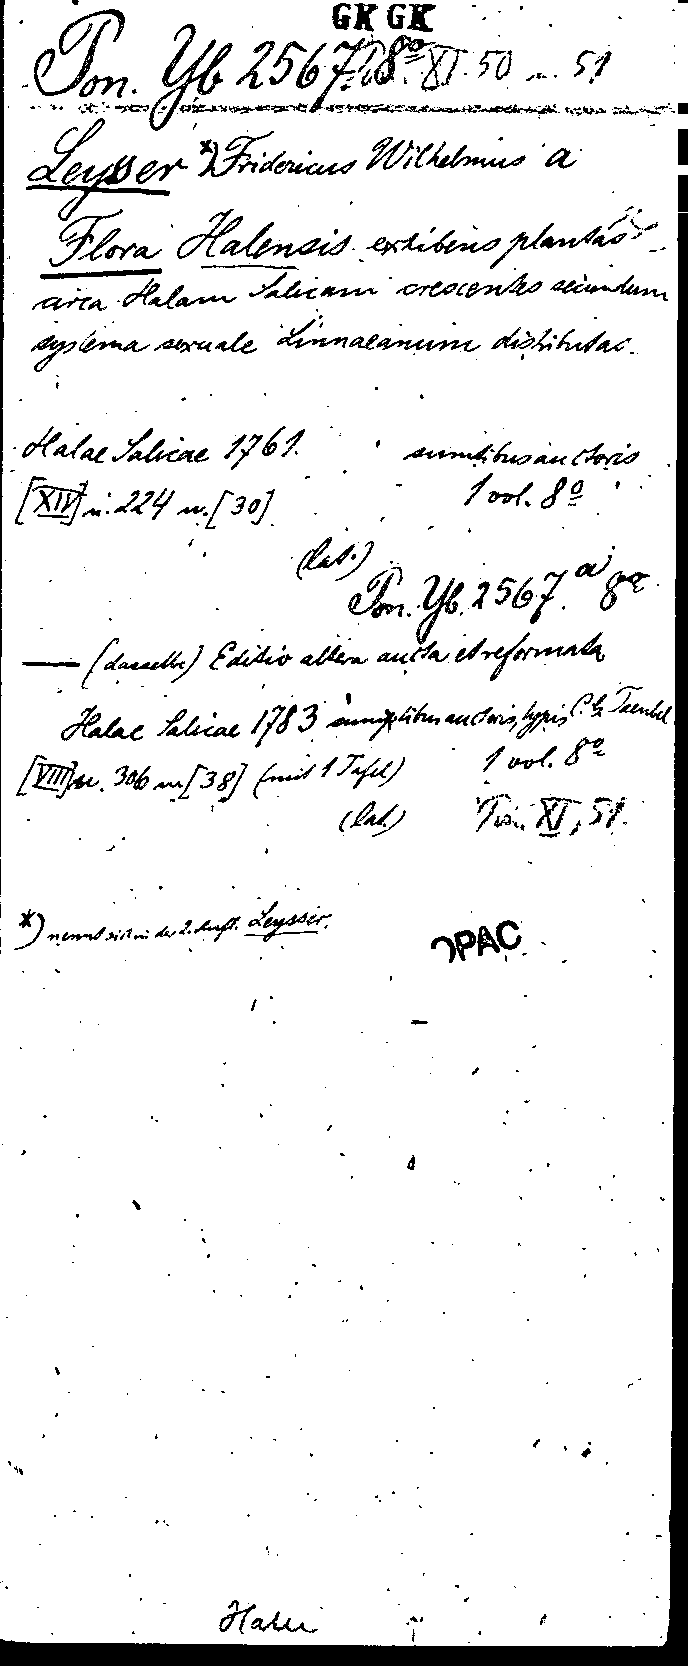 GK GK
Pon. Yb 2567. 8º XI. 50 u. 51
Leysser *) Fridericus Wilhelmus a
Flora Halensis exhibens plantas
circa Halam Salicam crescentes secundum
systema sexuale Linnaeanum distributas.
Halae Salicae 1761. sumtibus auctoris
[XIV] u. 224 u. [30] 1 vol. 8º
(lat.)
Pon. Yb. 2567.a 8º
— (dasselbe) Editio altera aucta et reformata
Halae Salicae 1783 sumptibus auctoris, typis C. G. Taeubel
[VIII] u. 306 u. [38] (mit 1 Tafel) 1 vol. 8º
(lat.) XI, 51.
*) nennt sich in der 2. Aufl. Leysser.
OPAC